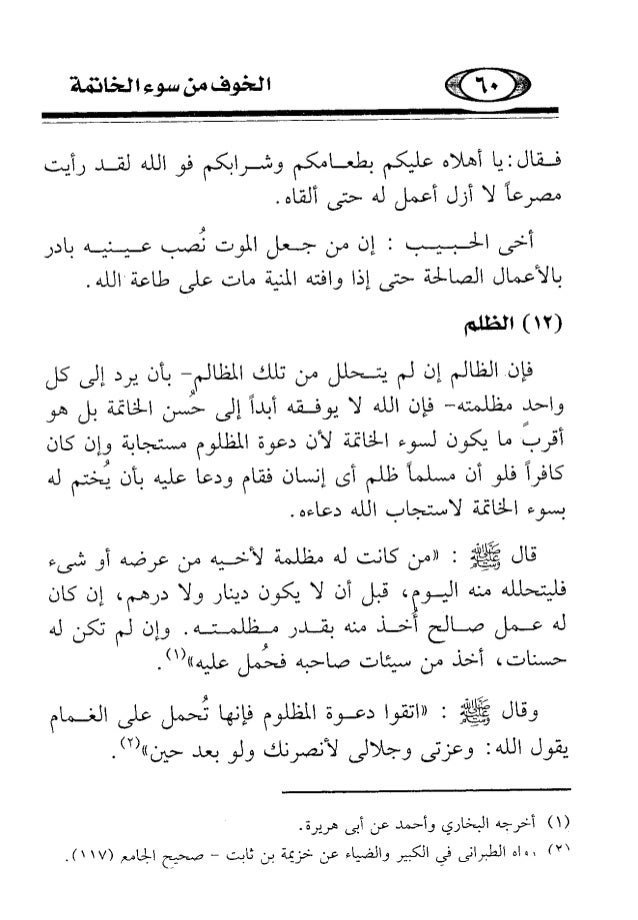 الخوف من سوء الخاتمة
٦٠
فـقال: يا أهلاه عليكم بطعـامكم وشـرابكم فو الله لقـد رأيت
مصرعاً لا أزل أعمل له حتى ألقاه.
أخى الحـبـيـب : إن من جـعل الموت نُصب عـيـنيـه بادر
بالأعمال الصالحة حتى إذا وافته المنية مات على طاعة الله.
(١٢) الظلم
فإن الظالم إن لم يتـحلل من تلك المظالم- بأن يرد إلى كل
واحد مظلمته- فإن الله لا يوفـقه أبداً إلى حُسن الخاتمة بل هو
أقرب ما يكون لسوء الخاتمة لأن دعوة المظلوم مستجابة وإن كان
كافراً فلو أن مسلماً ظلم أى إنسان فقام ودعا عليه بأن يُختم له
بسوء الخاتمة لاستجاب الله دعاءه.
قال ﷺ : «من كانت له مظلمة لأخـيه من عرضه أو شىء
فليتحلله منه اليـوم، قبل أن لا يكون دينار ولا درهم، إن كان
له عـمل صـالح أُخـذ منه بقـدر مـظلمـتـه. وإن لم تكن له
حسنات، أخذ من سيئات صاحبه فحُمل عليه»(١).
وقال ﷺ : «اتقوا دعـوة المظلوم فإنها تُحمل على الغـمام
يقول الله: وعزتى وجلالى لأنصرنك ولو بعد حين»(٢).
(١) أخرجه البخاري وأحمد عن أبى هريرة.
(٢) رواه الطبرانى في الكبير والضياء عن خزيمة بن ثابت - صحيح الجامع (١١٧).